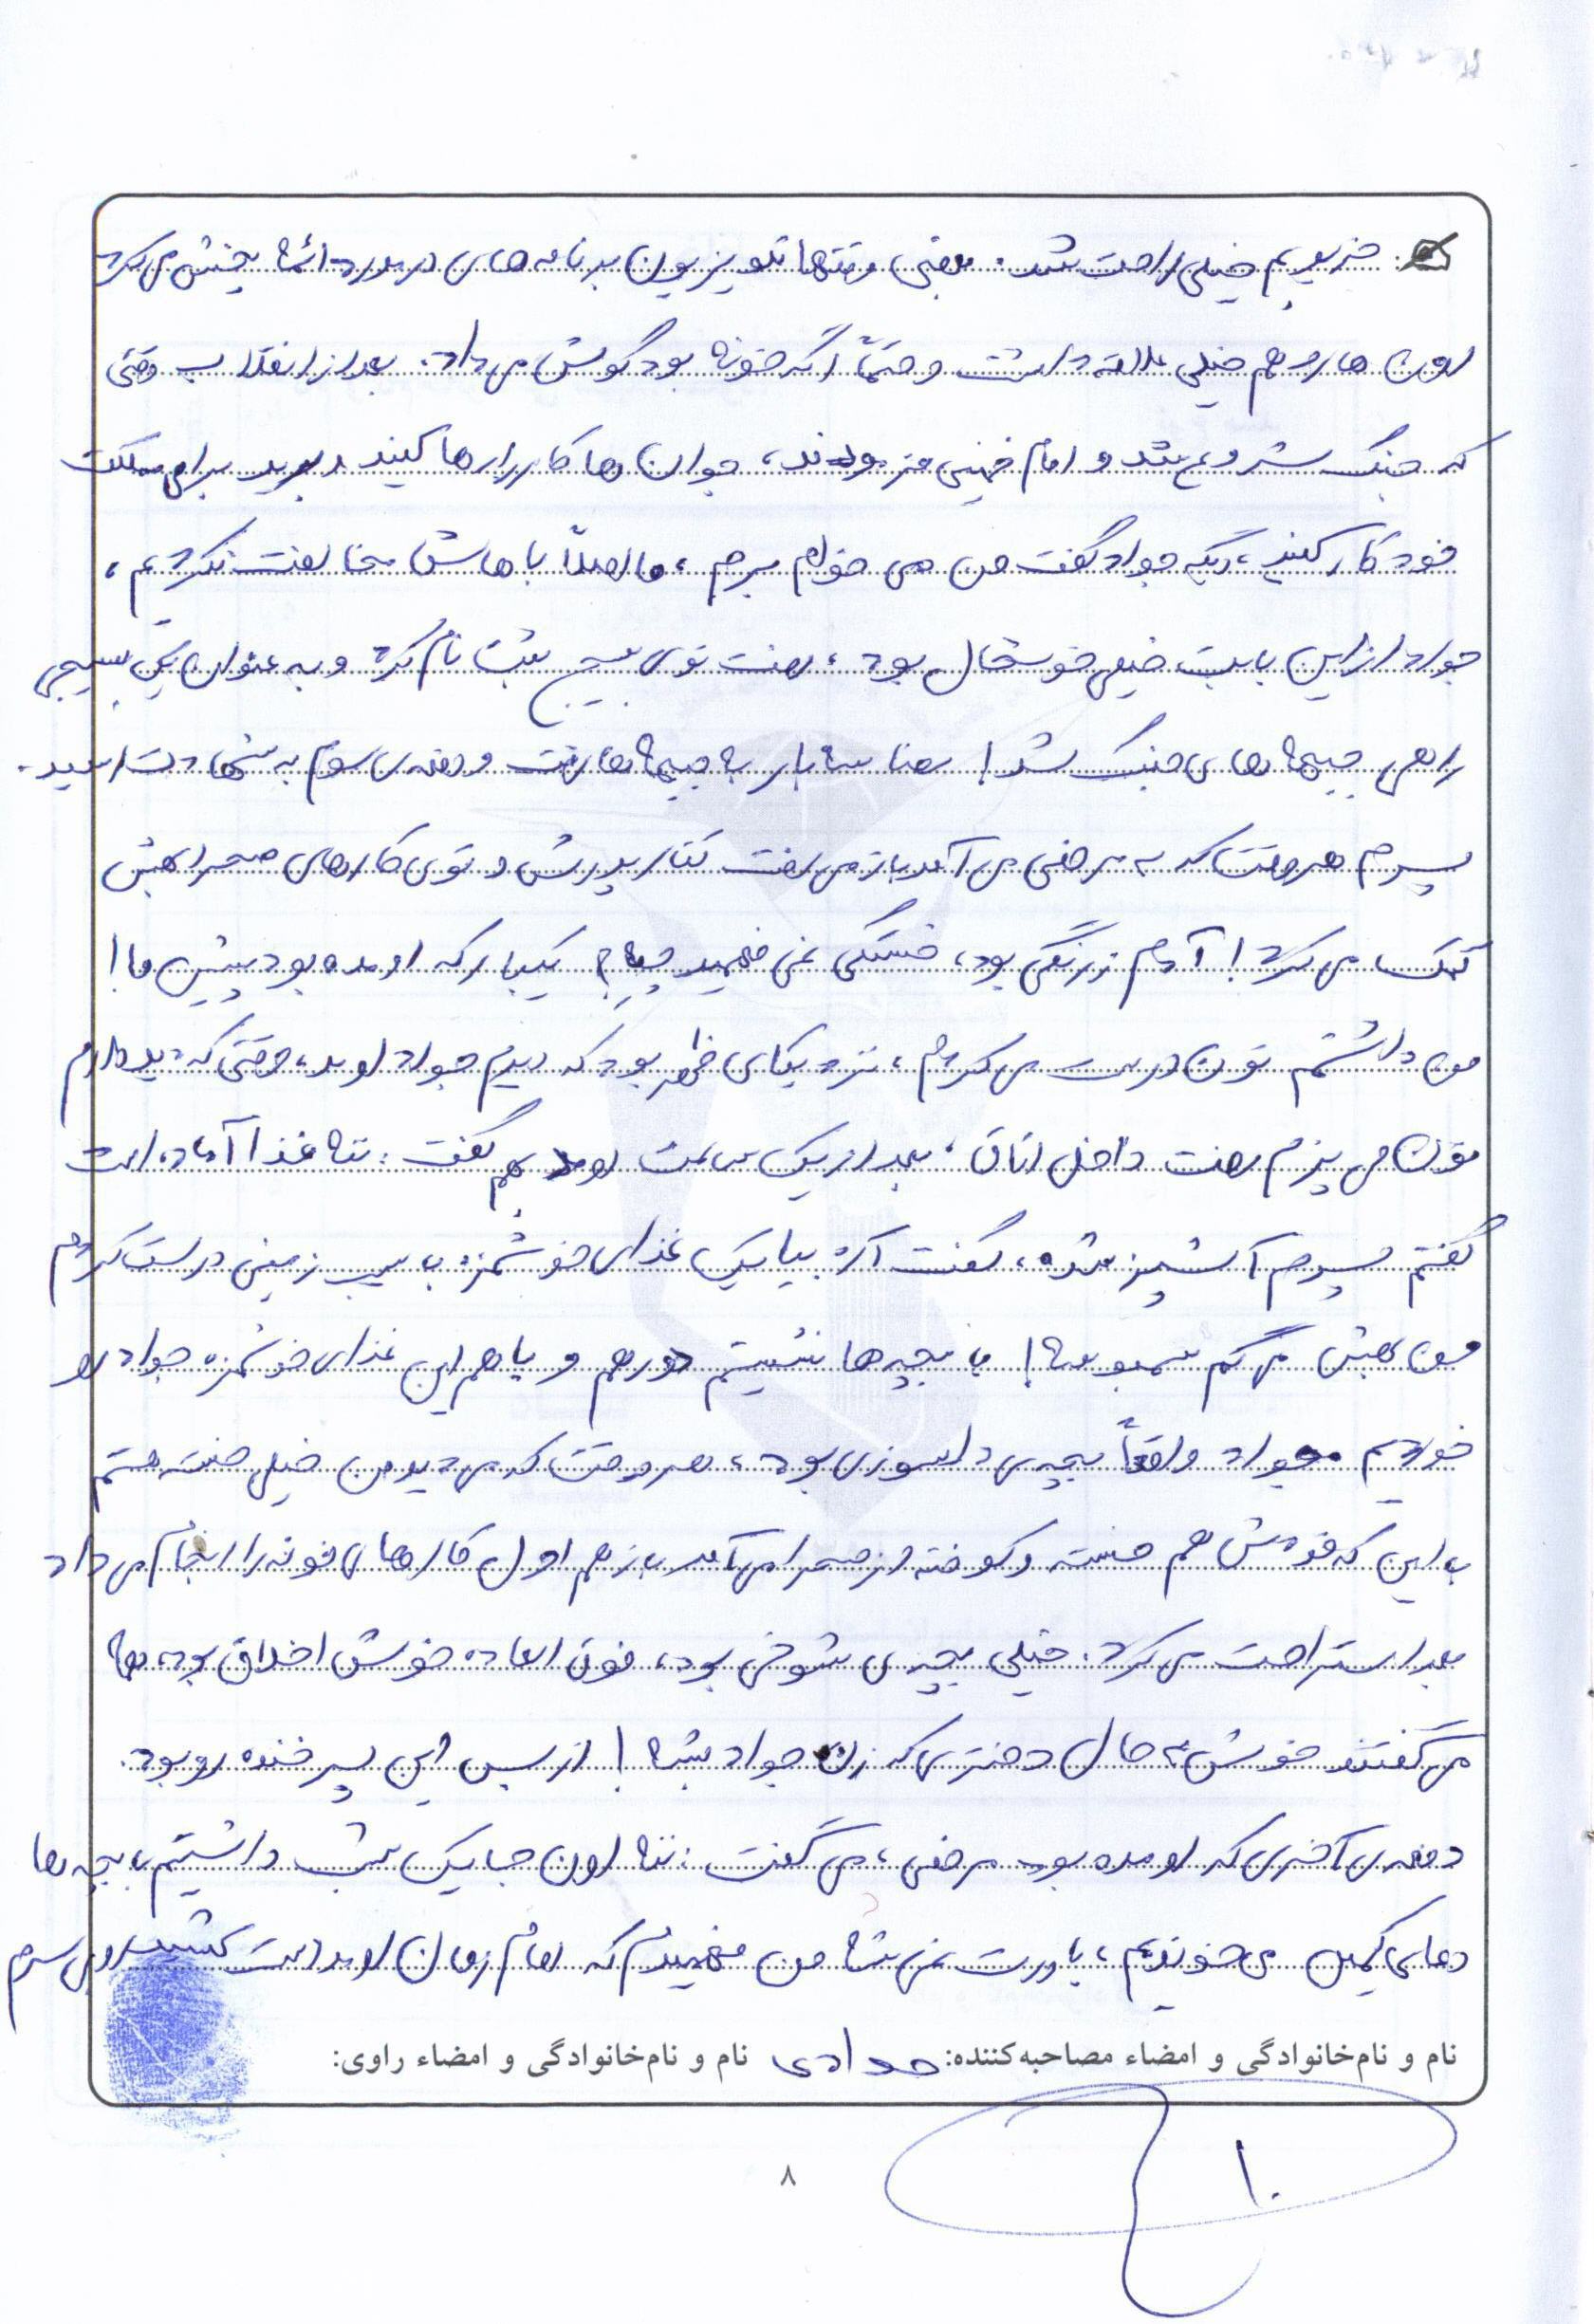 خریدیم خیلی راحت شد. بعضی وقتها تلویزیون برنامه های در مورد ائمه پخش می کرد
اون ها رو هم خیلی علاقه داشت و حتماً اگه خونه بود گوش می داد. بعد از انقلاب وقتی
که جنگ شروع شد و امام خمینی فرمودند، جوان ها کار را رها کنید و برید برای مملکت
خود کار کنید، دیگه جواد گفت من می خوام برم، ما اصلاً باهاش مخالفت نکردیم،
جواد از این بابت خیلی خوشحال بود، رفت توی بسیج ثبت نام کرد و به عنوان یک بسیجی
راهی جبهه های جنگ شد! سه بار به جبهه ها رفت و دفعه ی سوم به شهادت رسید.
پسرم هر وقت که به مرخصی می آمد باز می رفت کنار پدرش و توی کارهای صحرا بهش
کمک می کرد! آدم زرنگی بود، خستگی نمی فهمید چیه؟ یکبار که اومده بود پیش ما!
من داشتم نون درست می کردم، نزدیکای ظهر بود که دیدم جواد اومد، وقتی که دید دارم
نون می پزم رفت داخل اتاق، بعد از یک ساعت اومد بهم گفت: ننه غذا آماده است
گفتم پسرم آشپز شده، گفت آره بیا یک غذای خوشمزه با سیب زمینی درست کردم
من بهش می گم سمبوسه! با بچه ها نشستیم دور هم و با هم این غذای خوشمزه جواد رو
خوردیم جواد واقعاً بچه ی دلسوزی بود، هر وقت که می دید من خیلی خسته هستم
با این که خودش هم خسته و کوفته از صحرا می آمد باز هم اول کارهای خونه را انجام می داد
بعد استراحت می کرد. خیلی بچه ی شوخی بود، فوق العاده خوش اخلاق بود، همه
می گفتند خوش به حال دختری که زن جواد بشه! از بس این پسر خنده رو بود.
دفعه ی آخری که اومده بود مرخصی، می گفت: ننه اون جا یک شب داشتیم با بچه ها
دعای کمیل می خوندیم، باورت نمی شه من فهمیدم که امام زمان اومد دست کشید روی سرم
نام و نام‌خانوادگی و امضاء مصاحبه‌کننده: جوادی نام و نام‌خانوادگی و امضاء راوی:
۸